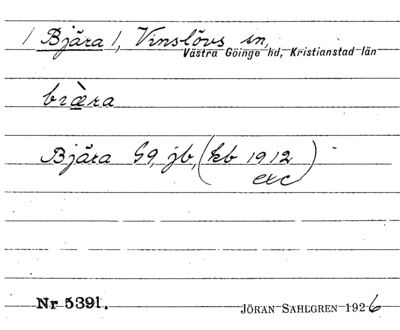 / Bjära /, Vinslövs sn,
Västra Göinge hd, Kristianstad län
bıæ̀ra
Bjära G9, jb, (kb 1912)
exc
Nr 5391.
JÖRAN SAHLGREN 1926